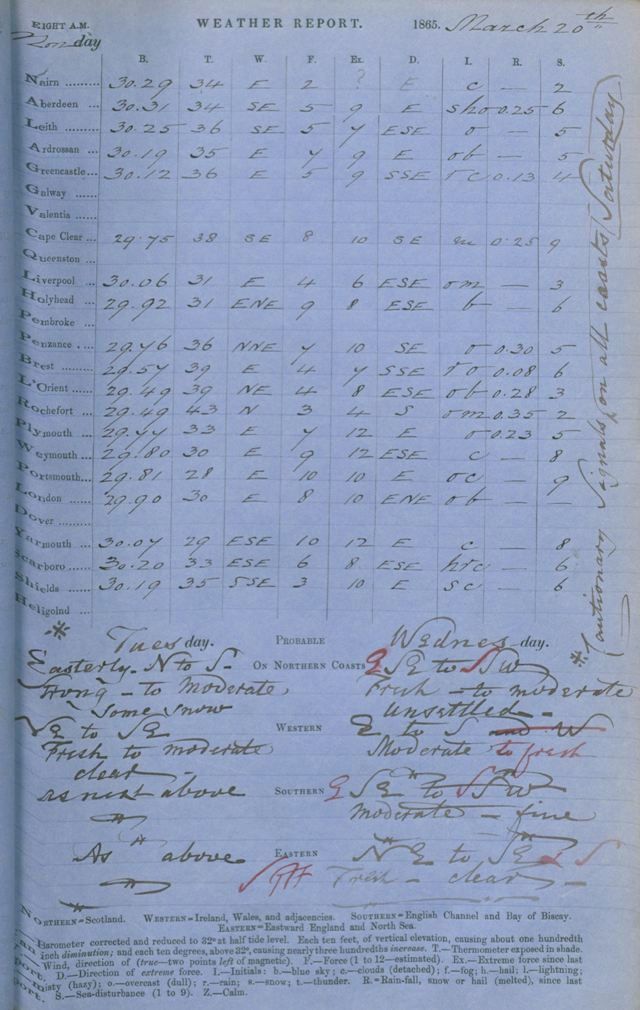 EIGHT A.M. WEATHER REPORT. 1865. March 20th
Monday
B. T. W. F. Ex. D. I. R. S.
Nairn 30.29 34 E 2 ? E c — 2
Aberdeen 30.31 34 SE 5 9 E sho 0.25 6
Leith 30.25 36 SE 5 7 ESE o — 5
Ardrossan 30.19 35 E 7 9 E ob — 5
Greencastle 30.12 36 E 5 9 SSE rc 0.13 4
Galway
Valentia
Cape Clear 29.75 38 SE 8 10 SE m 0.25 9
Queenston
Liverpool 30.06 31 E 4 6 ESE om — 3
Holyhead 29.92 31 ENE 9 8 ESE b — 6
Pembroke
Penzance 29.76 36 NNE 7 10 SE o 0.30 5
Brest 29.57 39 E 4 7 SSE ro 0.08 6
L'Orient 29.49 39 NE 4 8 ESE ob 0.28 3
Rochefort 29.49 43 N 3 4 S om 0.35 2
Plymouth 29.77 33 E 7 12 E o 0.23 5
Weymouth 29.80 30 E 9 12 ESE c — 8
Portsmouth 29.81 28 E 10 10 E oc — 9
London 29.90 30 E 8 10 ENE ob — —
Dover
Yarmouth 30.07 29 ESE 10 12 E c — 8
Scarboro 30.20 33 ESE 6 8 ESE hrc — 6
Shields 30.19 35 SSE 3 10 E sc — 6
Heligolnd
* Cautionary Signals on all coasts (Saturday)
Tuesday. PROBABLE Wednesday.
Easterly. N to S — ON NORTHERN COASTS E SE to SSW
Strong — to moderate Fresh — to moderate
Some snow Unsettled —
NE to SE WESTERN E to S and W
Fresh to moderate Moderate to fresh
clear
as next above SOUTHERN E SE to SSW
moderate — fine
As above EASTERN NE to SE & S
Fresh — clear —
NORTHERN=Scotland. WESTERN=Ireland, Wales, and adjacencies. SOUTHERN=English Channel and Bay of Biscay.
EASTERN=Eastward England and North Sea.
Barometer corrected and reduced to 32° at half tide level. Each ten feet, of vertical elevation, causing about one hundredth
inch diminution; and each ten degrees, above 32°, causing nearly three hundredths increase. T.—Thermometer exposed in shade.
Wind, direction of (true—two points left of magnetic). F.—Force (1 to 12—estimated). Ex.—Extreme force since last
port. D.—Direction of extreme force. I.—Initials: b.—blue sky; c.—clouds (detached); f.—fog; h.—hail; l.—lightning;
misty (hazy); o.—overcast (dull); r.—rain; s.—snow; t.—thunder. R.=Rain-fall, snow or hail (melted), since last
port. S.—Sea-disturbance (1 to 9). Z.—Calm.